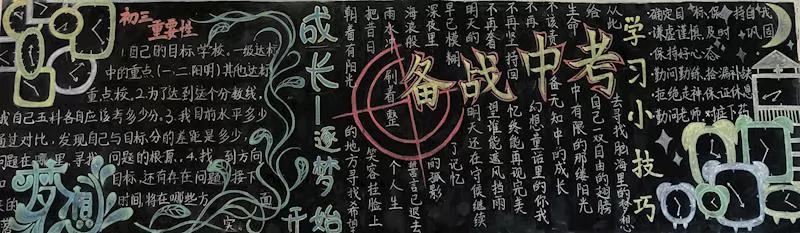 初三
重要性
1.自己的目标学校,一级达标
中的重点(一、二、阳明)其他达标
重点校。2.为了达到这个分数线,
我自己五科各自应该考多少分。3.我目前水平多少
通过对比,发现自己与目标分的差距是多少,
问题在哪里,寻找问题的根源。4.找到方向
目标,还有存在问题,接下
时间,将在哪些方面
突
落
梦想
成长—逐梦
开始
备战中考
朝着有阳光的地方寻找希望
把昔日笑容挂脸上
雨水洗刷着整个人生
海浪般誓言已退去
深夜里的孤影
早已模糊了记忆
明天的明天还在守候继续
不再坚持回望谁能遮风挡雨
不再奢忆终能再现完美
不该幻想童话里的你我
生命备无知中的成长
给此中有限的那缕阳光
从此自己一双自由的翅膀
去寻找脑海里的梦想
学习小技巧
·确定目标,保持自我
·谦虚谨慎,及时巩固
·保持好心态
·勤问勤练,拾漏补缺
·拒绝走神,保证休息
·勤问老师,对症下药